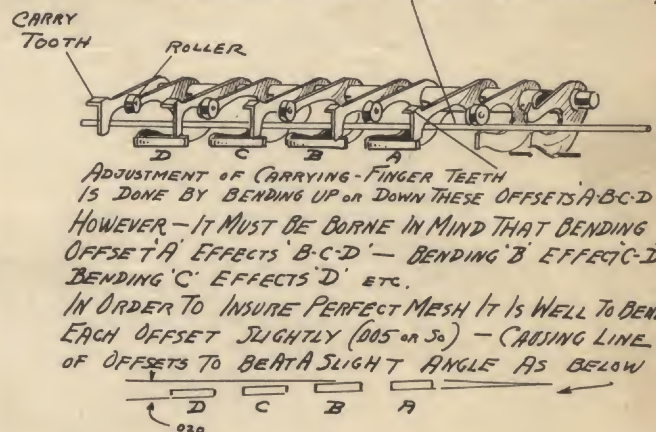 CARRY
TOOTH
ROLLER
D C B A
ADJUSTMENT OF CARRYING-FINGER TEETH
IS DONE BY BENDING UP OR DOWN THESE OFFSETS A-B-C-D
HOWEVER – IT MUST BE BORNE IN MIND THAT BENDING
OFFSET 'A' EFFECTS 'B-C-D' – BENDING 'B' EFFECT 'C-D
BENDING 'C' EFFECTS 'D' ETC.
IN ORDER TO INSURE PERFECT MESH IT IS WELL TO BEN
EACH OFFSET SLIGHTLY (.005 OR SO) – CAUSING LINE
OF OFFSETS TO BE AT A SLIGHT ANGLE AS BELOW
D C B A
.020